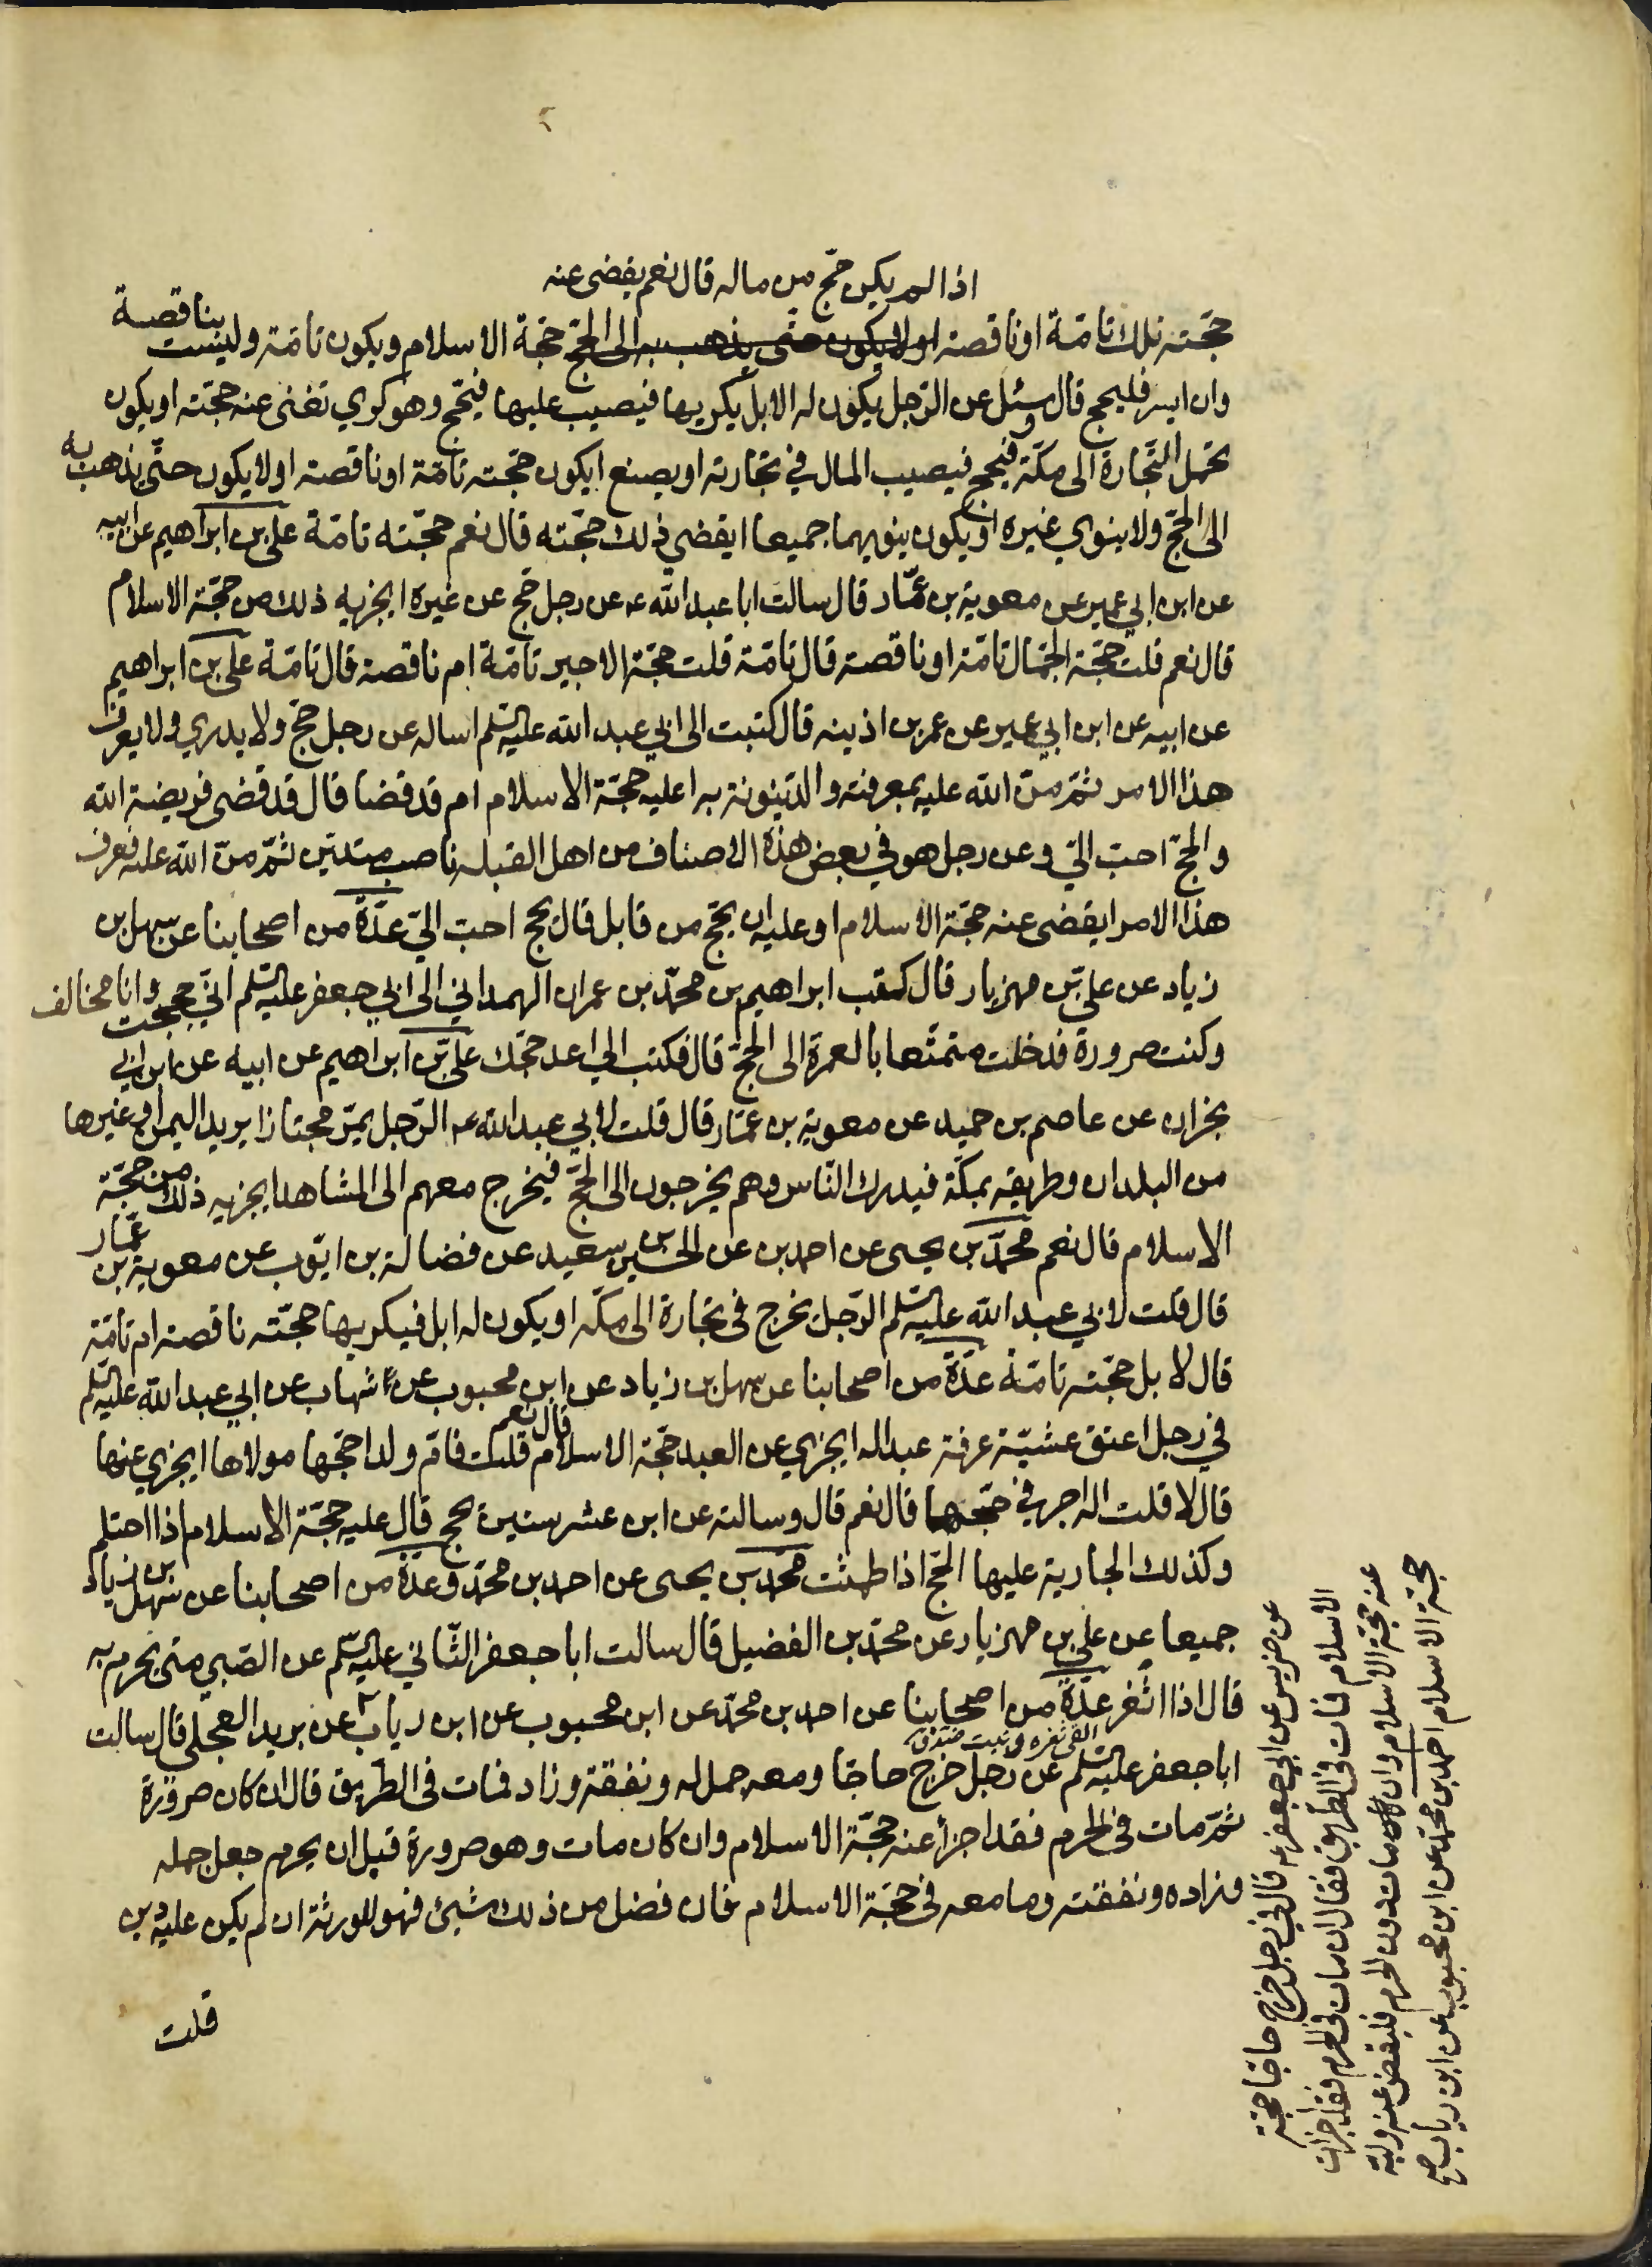 اذا لم يكن حج من ماله قال نعم يقضى عنه
حجته تلك تامة او ناقصة او لا يكون حتى يذهب به الى الحج حجة الاسلام ويكون تامة وليست بناقصة
وان ايسر فليحج قال وسئل عن الرجل يكون له الابل يكريها فيصيب عليها فيحج وهو كري تغنى عنه حجته او يكون
يحمل التجارة الى مكة فيحج فيصيب المال في تجارته او يضع ايكون حجته تامة او ناقصة او لا يكون حتى يذهب به
الى الحج ولا ينوي غيره او يكون ينويهما جميعا ايقضي ذلك حجته قال نعم حجته تامة علي بن ابراهيم عن ابيه
عن ابن ابي عمير عن معوية بن عمار قال سالت ابا عبد الله ع عن رجل حج عن غيره ايجزيه ذلك من حجة الاسلام
قال نعم قلت حجة الجمال تامة او ناقصة قال تامة قلت حجة الاجير تامة ام ناقصة قال تامة علي بن ابراهيم
عن ابيه عن ابن ابي عمير عن عمر بن اذينه قال كتبت الى ابي عبد الله عليه السلم اساله عن رجل حج ولا يدري ولا يعرف
هذا الامر ثم من الله عليه بمعرفته والدينونة به اعليه حجة الاسلام ام قد قضا قال قد قضى فريضة الله
والحج احب الي وعن رجل هو في بعض هذه الاصناف من اهل القبله ناصب متدين ثم من الله عليه فعرف
هذا الامر ايقضى عنه حجة الاسلام او عليه ان يحج من قابل قال يحج احب الي عدة من اصحابنا عن سهل بن
زياد عن علي بن مهزيار قال كتب ابراهيم بن محمد بن عمران الهمداني الى ابي جعفر عليه السلم اني حججت وانا مخالف
وكنت صرورة فدخلت متمتعا بالعمرة الى الحج قال فكتب الي اعد حجك علي بن ابراهيم عن ابيه عن ابن ابي
نجران عن عاصم بن حميد عن معوية بن عمار قال قلت لابي عبد الله ع الرجل يمر مجتازا يريد اليمن او غيرها
من البلدان وطريقه بمكة فيدرك الناس وهم يخرجون الى الحج فيخرج معهم الى المشاهد ايجزيه ذلك من حجة
الاسلام قال نعم محمد بن يحيى عن احمد بن عن الحسين بن سعيد عن فضالة بن ايوب عن معوية بن عمار
قال قلت لابي عبد الله عليه السلم الرجل يخرج في تجارة الى مكة او يكون له ابل فيكريها حجته ناقصة ام تامة
قال لا بل حجته تامة عدة من اصحابنا عن سهل بن زياد عن ابن محبوب عن شهاب عن ابي عبد الله عليه السلم
في رجل اعتق عشية عرفة عبدا له ايجزي عن العبد حجة الاسلام قال نعم قلت فام ولد احجها مولاها ايجزي عنها
قال لا قلت اله اجر في حجتها قال نعم قال وسالته عن ابن عشر سنين يحج قال عليه حجة الاسلام اذا احتلم
وكذلك الجارية عليها الحج اذا طمثت محمد بن يحيى عن احمد بن محمد وعدة من اصحابنا عن سهل بن زياد
جميعا عن علي بن مهزيار عن محمد بن الفضيل قال سالت ابا جعفر الثاني عليه السلم عن الصبي متى يحرم به
قال اذا اثغر عدة من اصحابنا عن احمد بن محمد عن ابن محبوب عن ابن رياب عن بريد العجلي قال سالت
القى ثغره ونبت
ابا جعفر عليه السلم عن رجل خرج حاجا ومعه جمل له ونفقة وزاد فمات في الطريق قال ان كان صرورة
ثم مات في الحرم فقد اجزأ عنه حجة الاسلام وان كان مات وهو صرورة قبل ان يحرم جعل جمله
وزاده ونفقته وما معه في حجة الاسلام فان فضل من ذلك شيئ فهو للورثة ان لم يكن عليه دين
قلت
عن ضريس عن ابي جعفر ع قال في رجل خرج حاجا حجة
الاسلام فمات في الطريق فقال ان مات في الحرم فقد اجزات
عنه حجة الاسلام وان مات دون الحرم فليقض عنه وليه
حجة الاسلام احمد بن محمد عن ابن محبوب عن ابن رياب صح